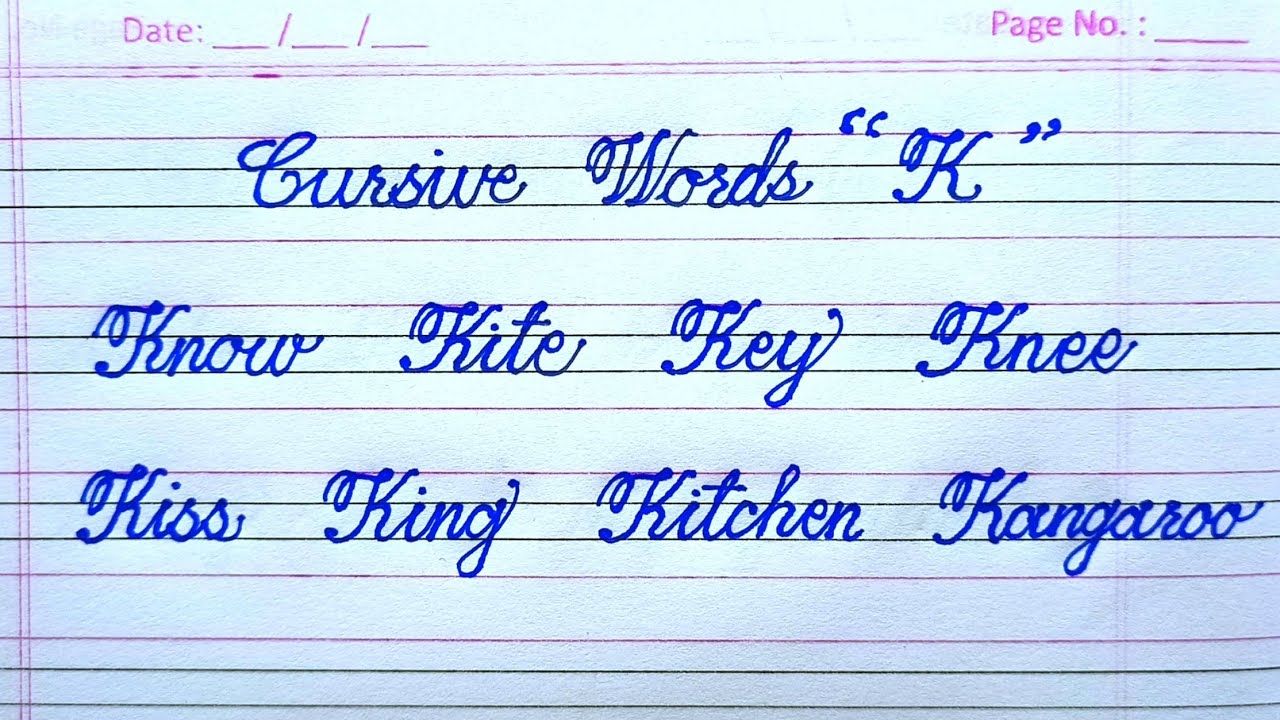 Date: ___ /___ /___ Page No. : _____
Cursive Words “K”
Know Kite Key Knee
Kiss King Kitchen Kangaroo